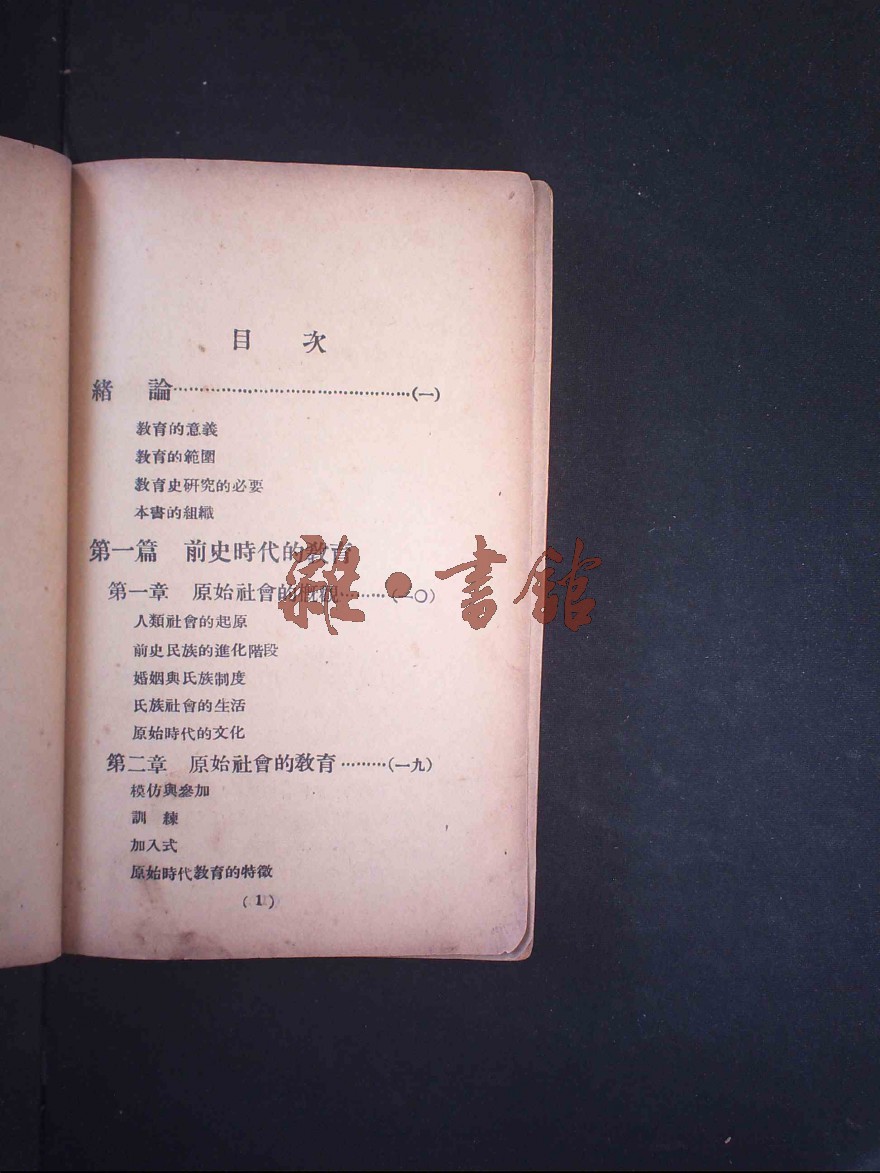 目　次
緒　論………………………………………(一)
教育的意義
教育的範圍
教育史研究的必要
本書的組織
第一篇　前史時代的教育
第一章　原始社會的概觀………(一〇)
雜·書館
人類社會的起原
前史民族的進化階段
婚姻與氏族制度
氏族社會的生活
原始時代的文化
第二章　原始社會的教育………(一九)
模仿與參加
訓　練
加入式
原始時代教育的特徵
(1)